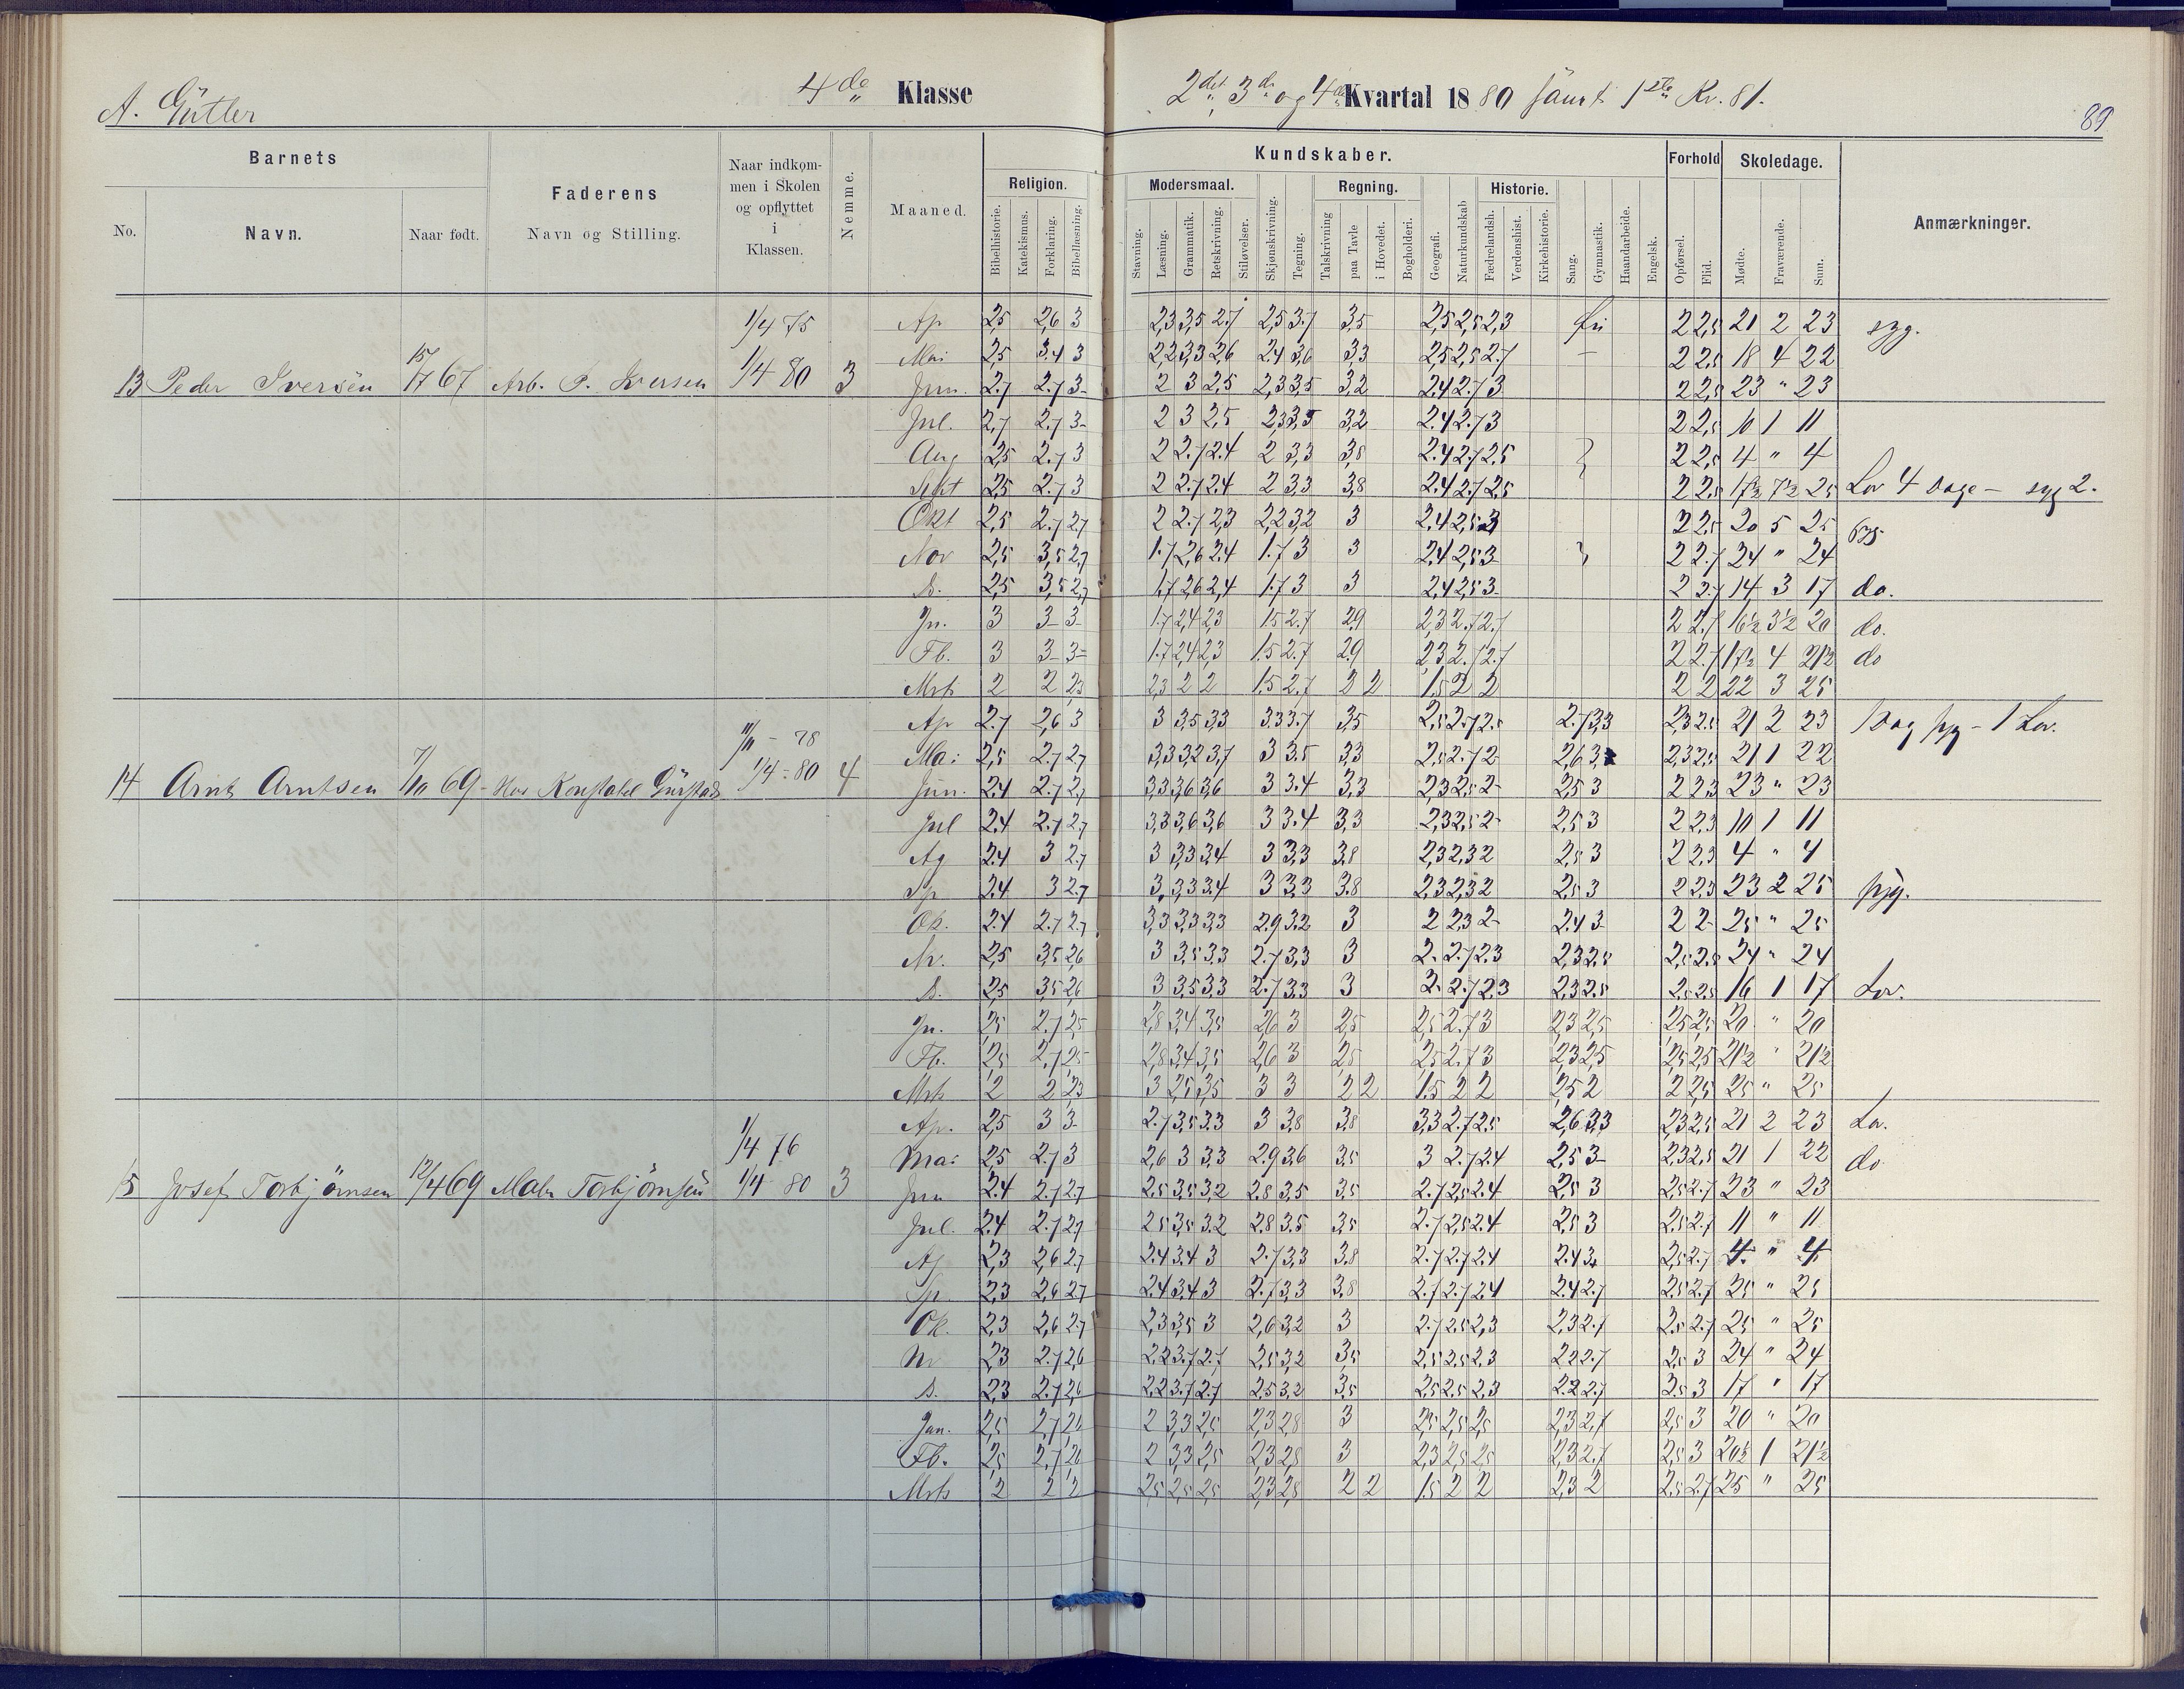 A. Gutler
4de Klasse
2det, 3de og 4de Kvartal 1880 samt 1ste Kv. 81.
89
Barnets
No.
Navn.
Naar født.
Faderens
Navn og Stilling.
Naar indkom-
men i Skolen
og opflyttet
i
Klassen.
Nemme.
Maaned.
Religion.
Bibelhistorie.
Katekismus.
Forklaring.
Bibellæsning.
Kundskaber.
Modersmaal.
Stavning.
Læsning.
Grammatik.
Retskrivning.
Stiløvelser.
Skjønskrivning.
Tegning.
Regning.
Talskrivning
paa Tavle
i Hovedet.
Bogholderi.
Geografi.
Naturkundskab
Historie.
Fædrelandsh.
Verdenshist.
Kirkehistorie.
Sang.
Gymnastik.
Haandarbeide.
Engelsk.
Forhold
Opførsel.
Flid.
Skoledage.
Mødte.
Fraværende.
Sum.
Anmærkninger.
1/4 75
Ap 2,5 2,6 3 2,3 3,5 2.7 2,5 3.7 3,5 2,5 2,5 2,3 fri 2 2,5 21 2 23 syg.
Mai 2,5 3.4 3 2,2 3,3 2,6 2,4 3,6 3,3 2,5 2,5 2.7 – 2 2,5 18 4 22
13 Peder Iversen 15/7 67 Arb. P. Iversen 1/4 80 3 Jun. 2.7 2.7 3 2 3 2,5 2,3 3,5 3,2 2,4 2.7 3 2 2,5 23 " 23
Jul. 2,7 2.7 3 2 3 2,5 2,3 3,5 3,2 2.4 2.7 3 2 2,5 10 1 11
Aug 2,5 2.7 3 2 2.7 2.4 2 3,3 3,8 2.4 2.7 2.5 2 2,5 4 " 4
Sept 2,5 2.7 3 2 2.7 2.4 2 3,3 3,8 2.4 2.7 2,5 2 2,5 17½ 7½ 25 Lov 4 Dage – syg 2.
Okt 2,5 2.7 2,7 2 2.7 2,3 2,2 3,2 3 2.4 2,5 3 2 2,5 20 5 25
Nov 2,5 3,5 2,7 1.7 2,6 2.4 1.7 3 3 2,4 2,5 3 2 2.7 24 " 24
D. 2,5 3,5 2,7 1.7 2,6 2,4 1.7 3 3 2,4 2,5 3 2 2.7 14 3 17 do.
Jn. 3 3 3 1.7 2,4 2,3 1.5 2.7 2,9 2,3 2.7 2.7 2 2.7 16½ 3½ 20 do.
Fb. 3 3 3 1.7 2,4 2,3 1.5 2.7 2,9 2,3 2.7 2.7 2 2.7 17½ 4 21½ do
Mrts 2 2 2,3 2,3 2 2 1,5 2.7 2 2 1,5 2 2 2 2 22 3 25
Ap 2.7 2,6 3 3 3,5 3,3 3.3 3.7 3,5 2,5 2.7 2.5 2.7 3,3 2,3 2.5 21 2 23 1 Dag syg – 1 Lov.
11/11 – 78
Mai 2,5 2.7 2,7 3,3 3,2 3,7 3 3.5 3,3 2,5 2.7 2 2,6 3 2,3 2,5 21 1 22
14 Arnt Arntsen 7/10 69 – Hos Konstabel 1/4 – 80 4 Jun. 2.4 2.7 2,7 3,3 3,6 3,6 3 3.4 3,3 2,3 2,5 2 2,5 3 2 2,3 23 " 23
Jul 2.4 2.7 2,7 3,3 3,6 3,6 3 3.4 3,3 2,3 2,5 2 2,5 3 2 2,3 10 1 11
Ag 2.4 3 2.7 3 3,3 3,4 3 3,3 3,8 2,3 2,3 2 2,5 3 2 2,3 4 " 4
Sp 2.4 3 2.7 3 3,3 3.4 3 3,3 3.8 2,3 2,3 2 2,5 3 2 2,3 23 2 25 syg.
Ok. 2.4 2.7 2,7 3,3 3,3 3,3 2.9 3,2 3 2 2,3 2 2.4 3 2 2 25 " 25
Nv. 2,5 3,5 2,6 3 3,5 3,3 2.7 3,3 3 2. 2.7 2.3 2,3 2,5 2,5 2.5 24 " 24
D. 2,5 3,5 2,6 3 3,5 3,3 2.7 3.3 3 2. 2.7 2,3 2,3 2.5 2,5 2,5 16 1 17 Lov.
Jn. 2,5 2.7 2,5 2,8 3,4 3,5 2,6 3 2,5 2,5 2.7 3 2,3 2,5 2,5 2,5 20 " 20
Fb. 2,5 2.7 2,5 2,8 3,4 3,5 2,6 3 2,5 2,5 2.7 3 2,3 2,5 2,5 2,5 21½ " 21½
Mrts 2 2 2,3 3 2,5 3,5 3 3 2 2 1.5 2 2 2,5 2 2 2,5 25 " 25
Ap. 2,5 3 3 2.7 3,5 3.3 3 3,8 3,8 3,3 2.7 2,5 2,6 3,3 2,3 2,5 21 2 23 Lov.
1/4 76
Mai 2,5 2.7 3 2,6 3 3,3 2.9 3,6 3,5 3 2.7 2.4 2,5 3 2,3 2,5 21 1 22 do
15 Josef Torbjörnsen 12/4 69 Torbjörnsen 1/4 80 3 Jun 2.4 2.7 2.7 2.5 3,5 3,2 2.8 3,5 3,5 2.7 2,5 2.4 2,5 3 2,5 2.7 23 " 23
Jul. 2.4 2.7 2,7 2,5 3,5 3.2 2.8 3.5 3,5 2.7 2,5 2.4 2,5 3 2,5 2.7 11 " 11
Ag 2,3 2,6 2.7 2.4 3.4 3 2.7 3,3 3.8 2.7 2.7 2.4 2.4 3 2,5 2.7 4 " 4
Sp. 2,3 2,6 2.7 2.4 3,4 3 2.7 3,3 3,8 2.7 2.7 2.4 2.4 2.7 2.5 2.7 25 " 25
Ok. 2,3 2,6 2.7 2,3 3,5 3 2,6 3,2 3 2.7 2.5 2,3 2,3 2.7 2.5 2.7 25 " 25
Nv 2,3 2.7 2,6 2,2 3.7 2.7 2,5 3,2 3,5 2,5 2,5 2,3 2.2 2.7 2,5 3 24 " 24
D. 2,3 2.7 2,6 2,2 3.7 2.7 2,5 3,2 3,5 2,5 2,5 2,3 2.2 2.7 2.5 3 17 " 17
Jan. 2,5 2,7 2,6 2 3,3 2,5 2,3 2,8 3 2,5 2,5 2,5 2,3 2,7 2,5 3 20 " 20
Fb. 2,5 2,7 2,6 2 3,3 2,5 2,3 2,8 3 2,3 2,5 2,5 2,3 2.7 2,5 3 20½ 1 21½
Mrts 2 2 2 2,5 2,5 2,5 2,3 2,8 2 2 1.5 2 2 2,3 2 2.5 2.7 25 " 25